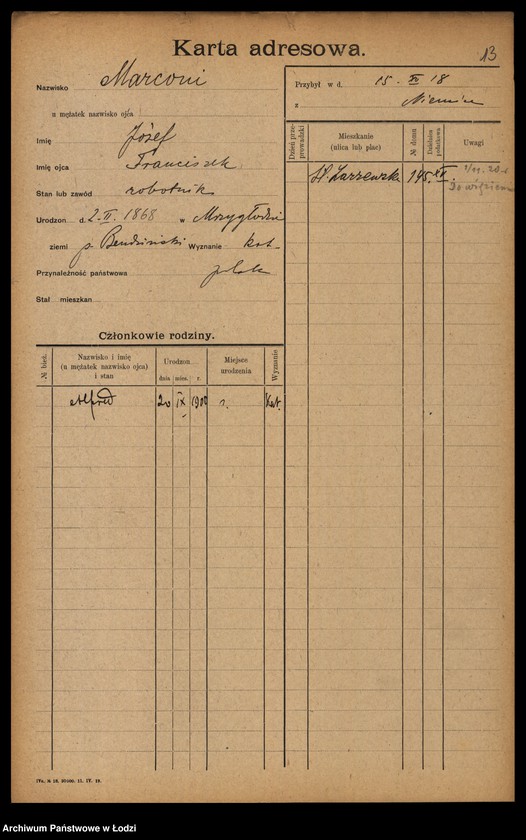 13
Karta adresowa.
Nazwisko Marconi
u mężatek nazwisko ojca
Imię Józef
Imię ojca Franciszek
Stan lub zawód robotnik
Urodzon d. 2. II. 1868 w Mrzygłodzie
ziemi p. Bendziński Wyznanie kat.
Przynależność państwowa polsk
Stał mieszkan
Członkowie rodziny.
№ bież.
Nazwisko i imię
(u mężatek nazwisko ojca)
i stan
Urodzon
dnia mies. r.
Miejsce
urodzenia
Wyznanie
Alfred 20 IX 1900 Kat.
Przybył w d. 15. XI 18
z Niemiec
Dzień prze-
prowadzki
Mieszkanie
(ulica lub plac)
№ domu
Dzielnica
podatkowa
Uwagi
Zarzewska 145. XII.
Do więzienia
15. IV. 19.
Archiwum Państwowe w Łodzi